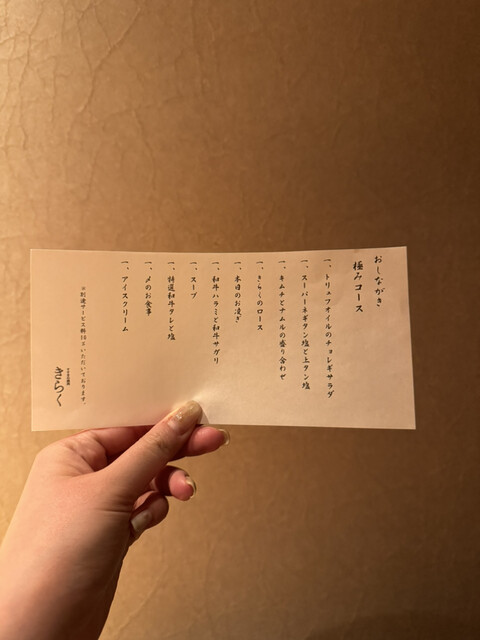 おしながき
極みコース
一、トリュフオイルのチョレギサラダ
一、スーパーネギタン塩と上タン塩
一、キムチとナムルの盛り合わせ
一、きらくのロース
一、本日のお凌ぎ
一、和牛ハラミと和牛サガリ
一、スープ
一、特選和牛タレと塩
一、〆のお食事
一、アイスクリーム
※別途サービス料10%いただいております。
きらく